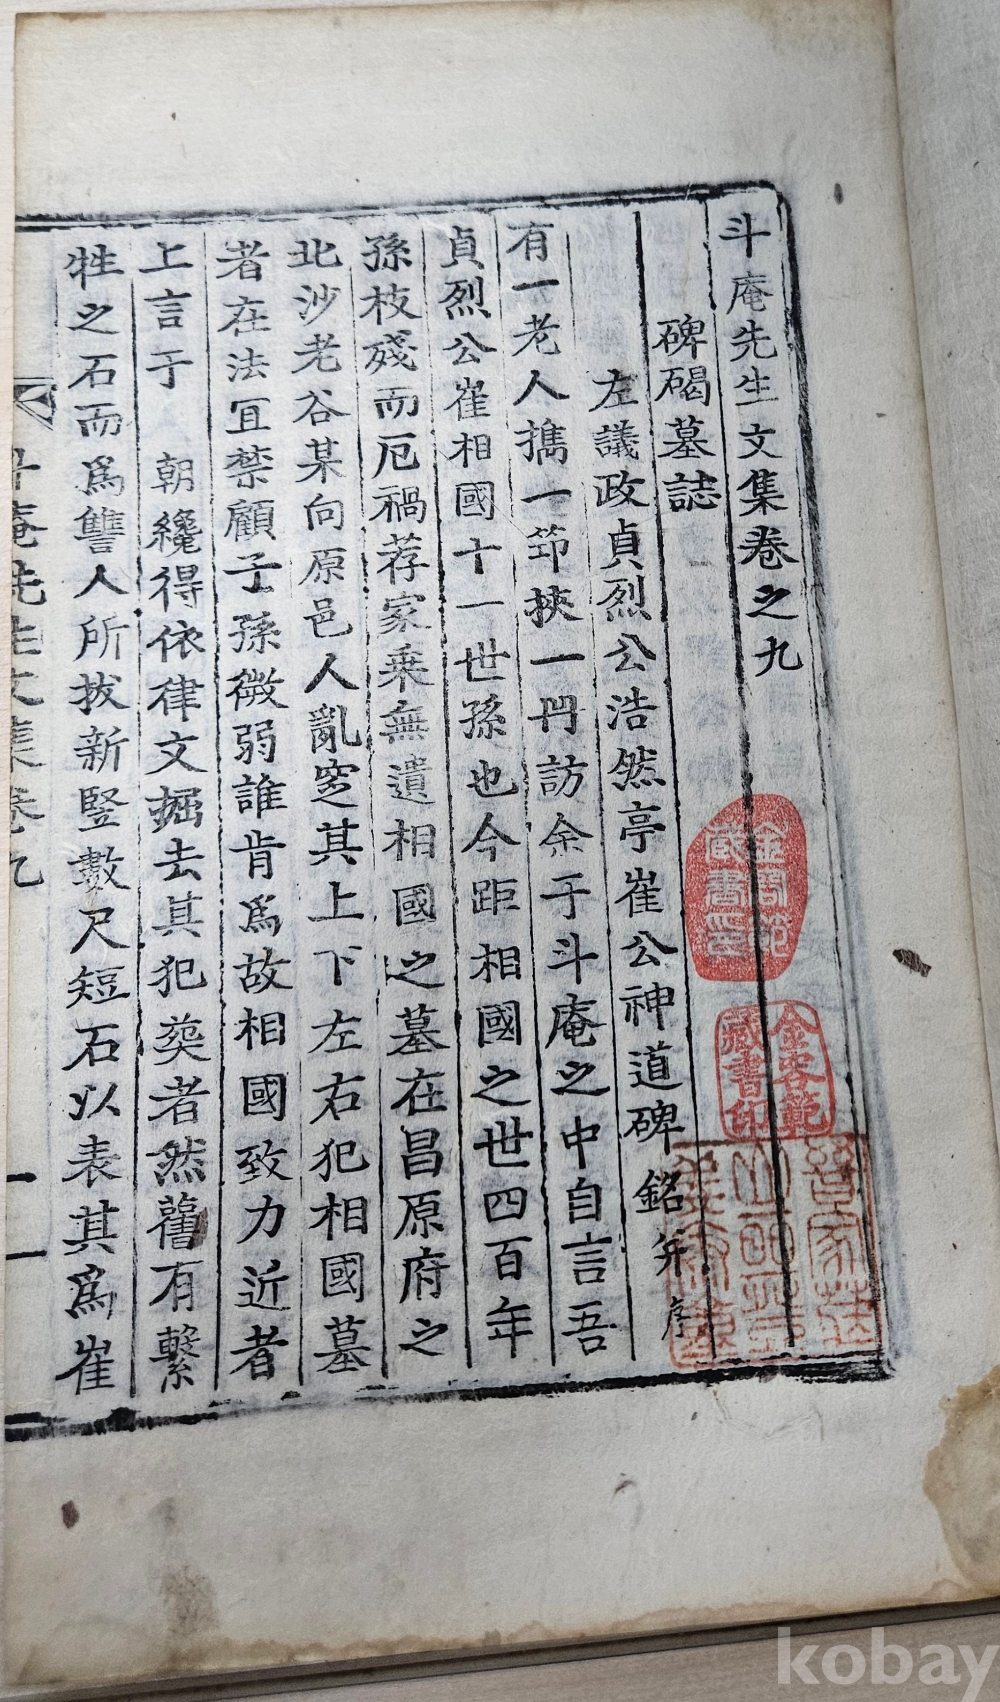 斗庵先生文集卷之九
碑碣墓誌
左議政貞烈公浩然亭崔公神道碑銘 并序
有一老人擕一笻挾一冊訪余于斗庵之中自言吾
貞烈公崔相國十一世孫也今距相國之世四百年
孫枝殘而厄禍荐家乘無遺相國之墓在昌原府之
北沙老谷某向原邑人亂窆其上下左右犯相國墓
者在法冝禁顧子孫微弱誰肯爲故相國致力近者
上言于 朝纔得依律文掘去其犯葬者然舊有繫
牲之石而爲讐人所拔新竪數尺短石以表其爲崔
斗庵先生文集卷九
一
金容範
藏書印
kobay